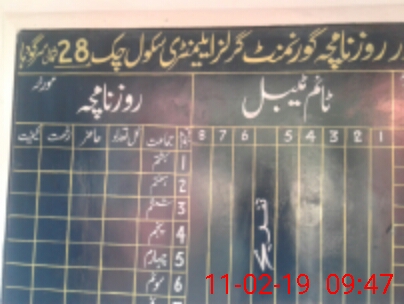 ور روزنامچہ گورنمنٹ گرلز ایلیمنٹری سکول چک 28 شمالی سرگودہا
روزنامچہ
مورخہ
ٹائم ٹیبل
نمبر جماعت کل تعداد حاضر رخصت کیفیت
8 7 6 5 4 3 2 1
1 ہشتم
2 ہفتم
3 ششم
4 پنجم
5 چہارم
6 سوئم
تفریح
11-02-19 09:47